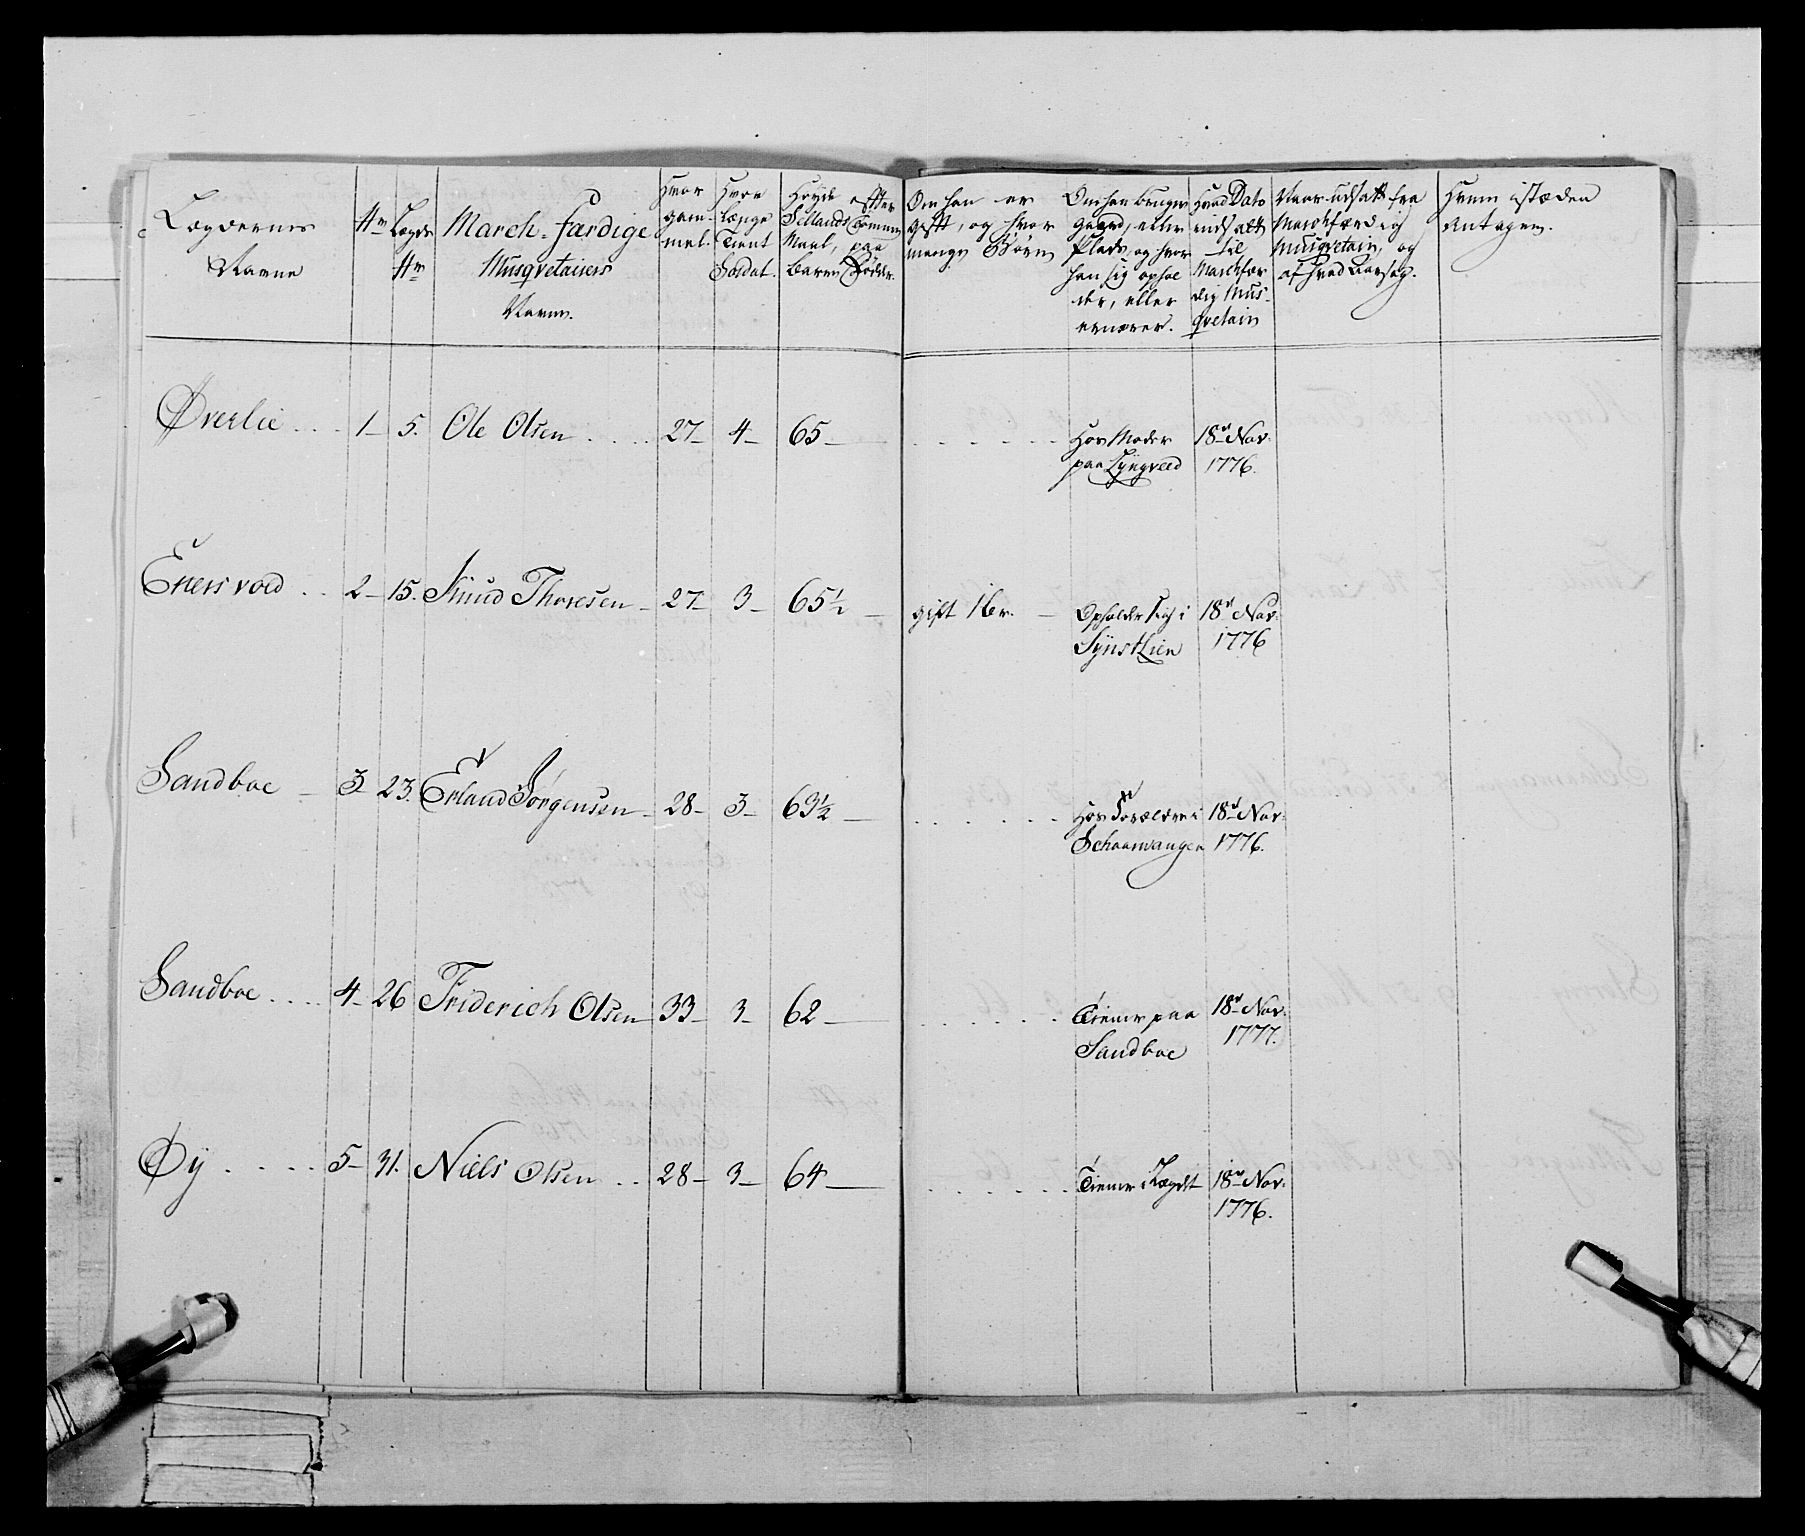 Lægdernes Navne
No
Lægds No
March-færdige Musqvetairers Navne.
Hvor gammel.
Hvor længe Tient Soldat.
Høyde efter Sellands Tommer Maal, paa barre Fødder.
Om han er gift, og hvor mange Børn
Om han bruger Gaard, eller Plads, og hvor han sig opholder, eller ernærer.
Hvad Dato indsatt til Marchfærdig Musqvetair
Naar udsatt fra Marchfærdig Musqvetair, og af hvad Aarsag.
Hvem istæden antagen.
Øverlie .... 1 5. Ole Olsen .... 27 4 65 ...... Hos Moder 18de Nov:
paa Lyngveed 1776.
Enersvold .. 2 15. Knud Thoresen 27 3 65½ gift 1 br. Opholder sig i 18de Nov:
Synst Lien 1776
Sandboe 3 23. Erland Jørgensen 28 3 63½ ...... Hos Forældrene i 18de Nov:
Schaarvangen 1776.
Sandboe .... 4 26 Friderich Olsen 33 3 62 ...... Tiener paa 18de Nov:
Sandboe 1777.
Øy .... 5 31. Niels Olsen .. 28 3 64 ...... Tiener i Lægdet 18de Nov:
1776.